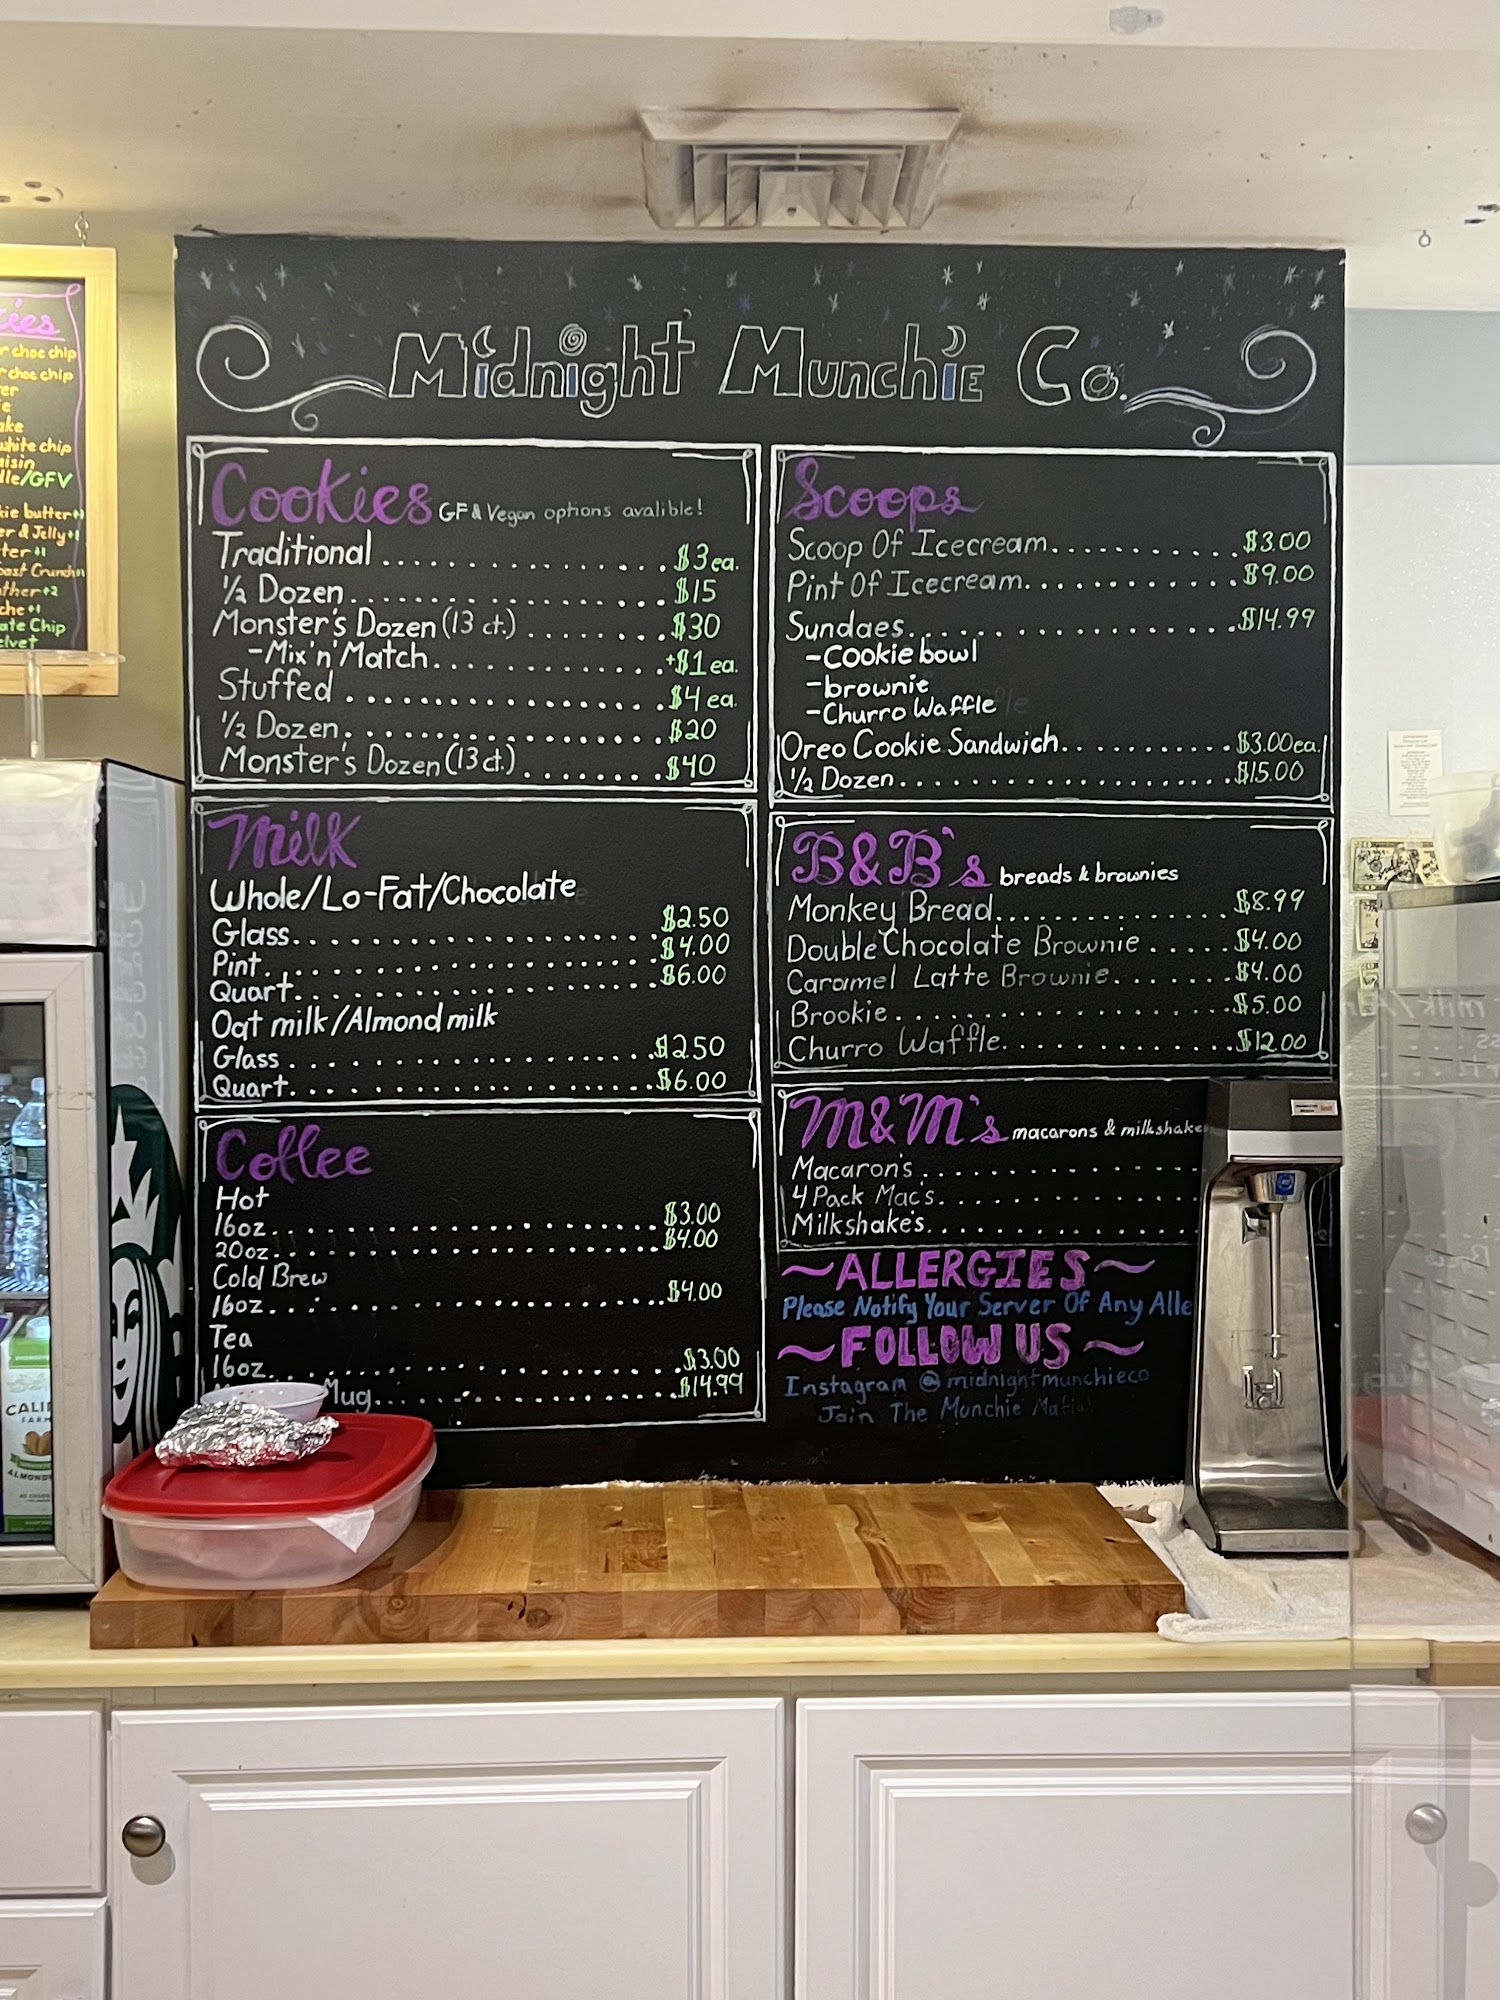 Midnight Munchie Co.
Cookies GF & Vegan options avalible!
Traditional . . . . . . . . . . . . . . . . $3 ea.
½ Dozen. . . . . . . . . . . . . . . . . . $15
Monster's Dozen (13 ct.) . . . . . . . . $30
-Mix'n'Match. . . . . . . . . . . . . +$1 ea.
Stuffed . . . . . . . . . . . . . . . . . . $4 ea.
½ Dozen. . . . . . . . . . . . . . . . . . $20
Monster's Dozen (13 ct.) . . . . . . . . $40
Milk
Whole/Lo-Fat/Chocolate
Glass. . . . . . . . . . . . . . . . . . . . $2.50
Pint. . . . . . . . . . . . . . . . . . . . . $4.00
Quart. . . . . . . . . . . . . . . . . . . . $6.00
Oat milk/Almond milk
Glass . . . . . . . . . . . . . . . . . . . . $2.50
Quart. . . . . . . . . . . . . . . . . . . . $6.00
Coffee
Hot
16oz. . . . . . . . . . . . . . . . . . . . . $3.00
20oz. . . . . . . . . . . . . . . . . . . . . $4.00
Cold Brew
16oz. . . . . . . . . . . . . . . . . . . . . $4.00
Tea
16oz. . . . . . . . . . . . . . . . . . . . . $3.00
Mug. . . . . . . . . . . . . . . . . . $14.99
Scoops
Scoop Of Icecream. . . . . . . . . . . . $3.00
Pint Of Icecream. . . . . . . . . . . . . $9.00
Sundaes. . . . . . . . . . . . . . . . . . $14.99
-Cookie bowl
-brownie
-Churro Waffle
Oreo Cookie Sandwich. . . . . . . . . . $3.00ea.
½ Dozen. . . . . . . . . . . . . . . . . . $15.00
B&B's breads & brownies
Monkey Bread. . . . . . . . . . . . . . . $8.99
Double Chocolate Brownie . . . . . $4.00
Caramel Latte Brownie. . . . . . . . $4.00
Brookie . . . . . . . . . . . . . . . . . . $5.00
Churro Waffle. . . . . . . . . . . . . . $12.00
M&M's macarons & milkshake
Macaron's . . . . . . . . . . . . . . . .
4 Pack Mac's. . . . . . . . . . . . . . .
Milkshake's. . . . . . . . . . . . . . .
~ALLERGIES~
Please Notify Your Server Of Any Alle
~FOLLOW US~
Instagram @midnightmunchieco
Join The Munchie Mafia!
ies
r choc chip
r choc chip
ake
white chip
aisin
dle/GFV
ie butter+1
er & Jelly+1
ter +1
oast Crunch+1
ther+2
che+1
ate Chip
elvet
CALI
FARM
ALMOND